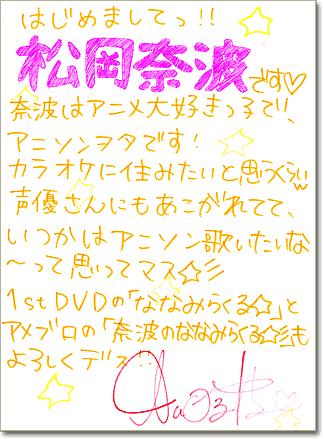 はじめましてっ!!
松岡奈波です♡
奈波はアニメ大好きっ子で、
アニソンヲタです!
カラオケに住みたいと思うくらいw
声優さんにもあこがれてて、
いつかはアニソン歌いたいな
〜って思ってマス☆彡
1stDVDの「ななみらくる☆」と
アメブロの「奈波のななみらくる☆彡」も
よろしくデス